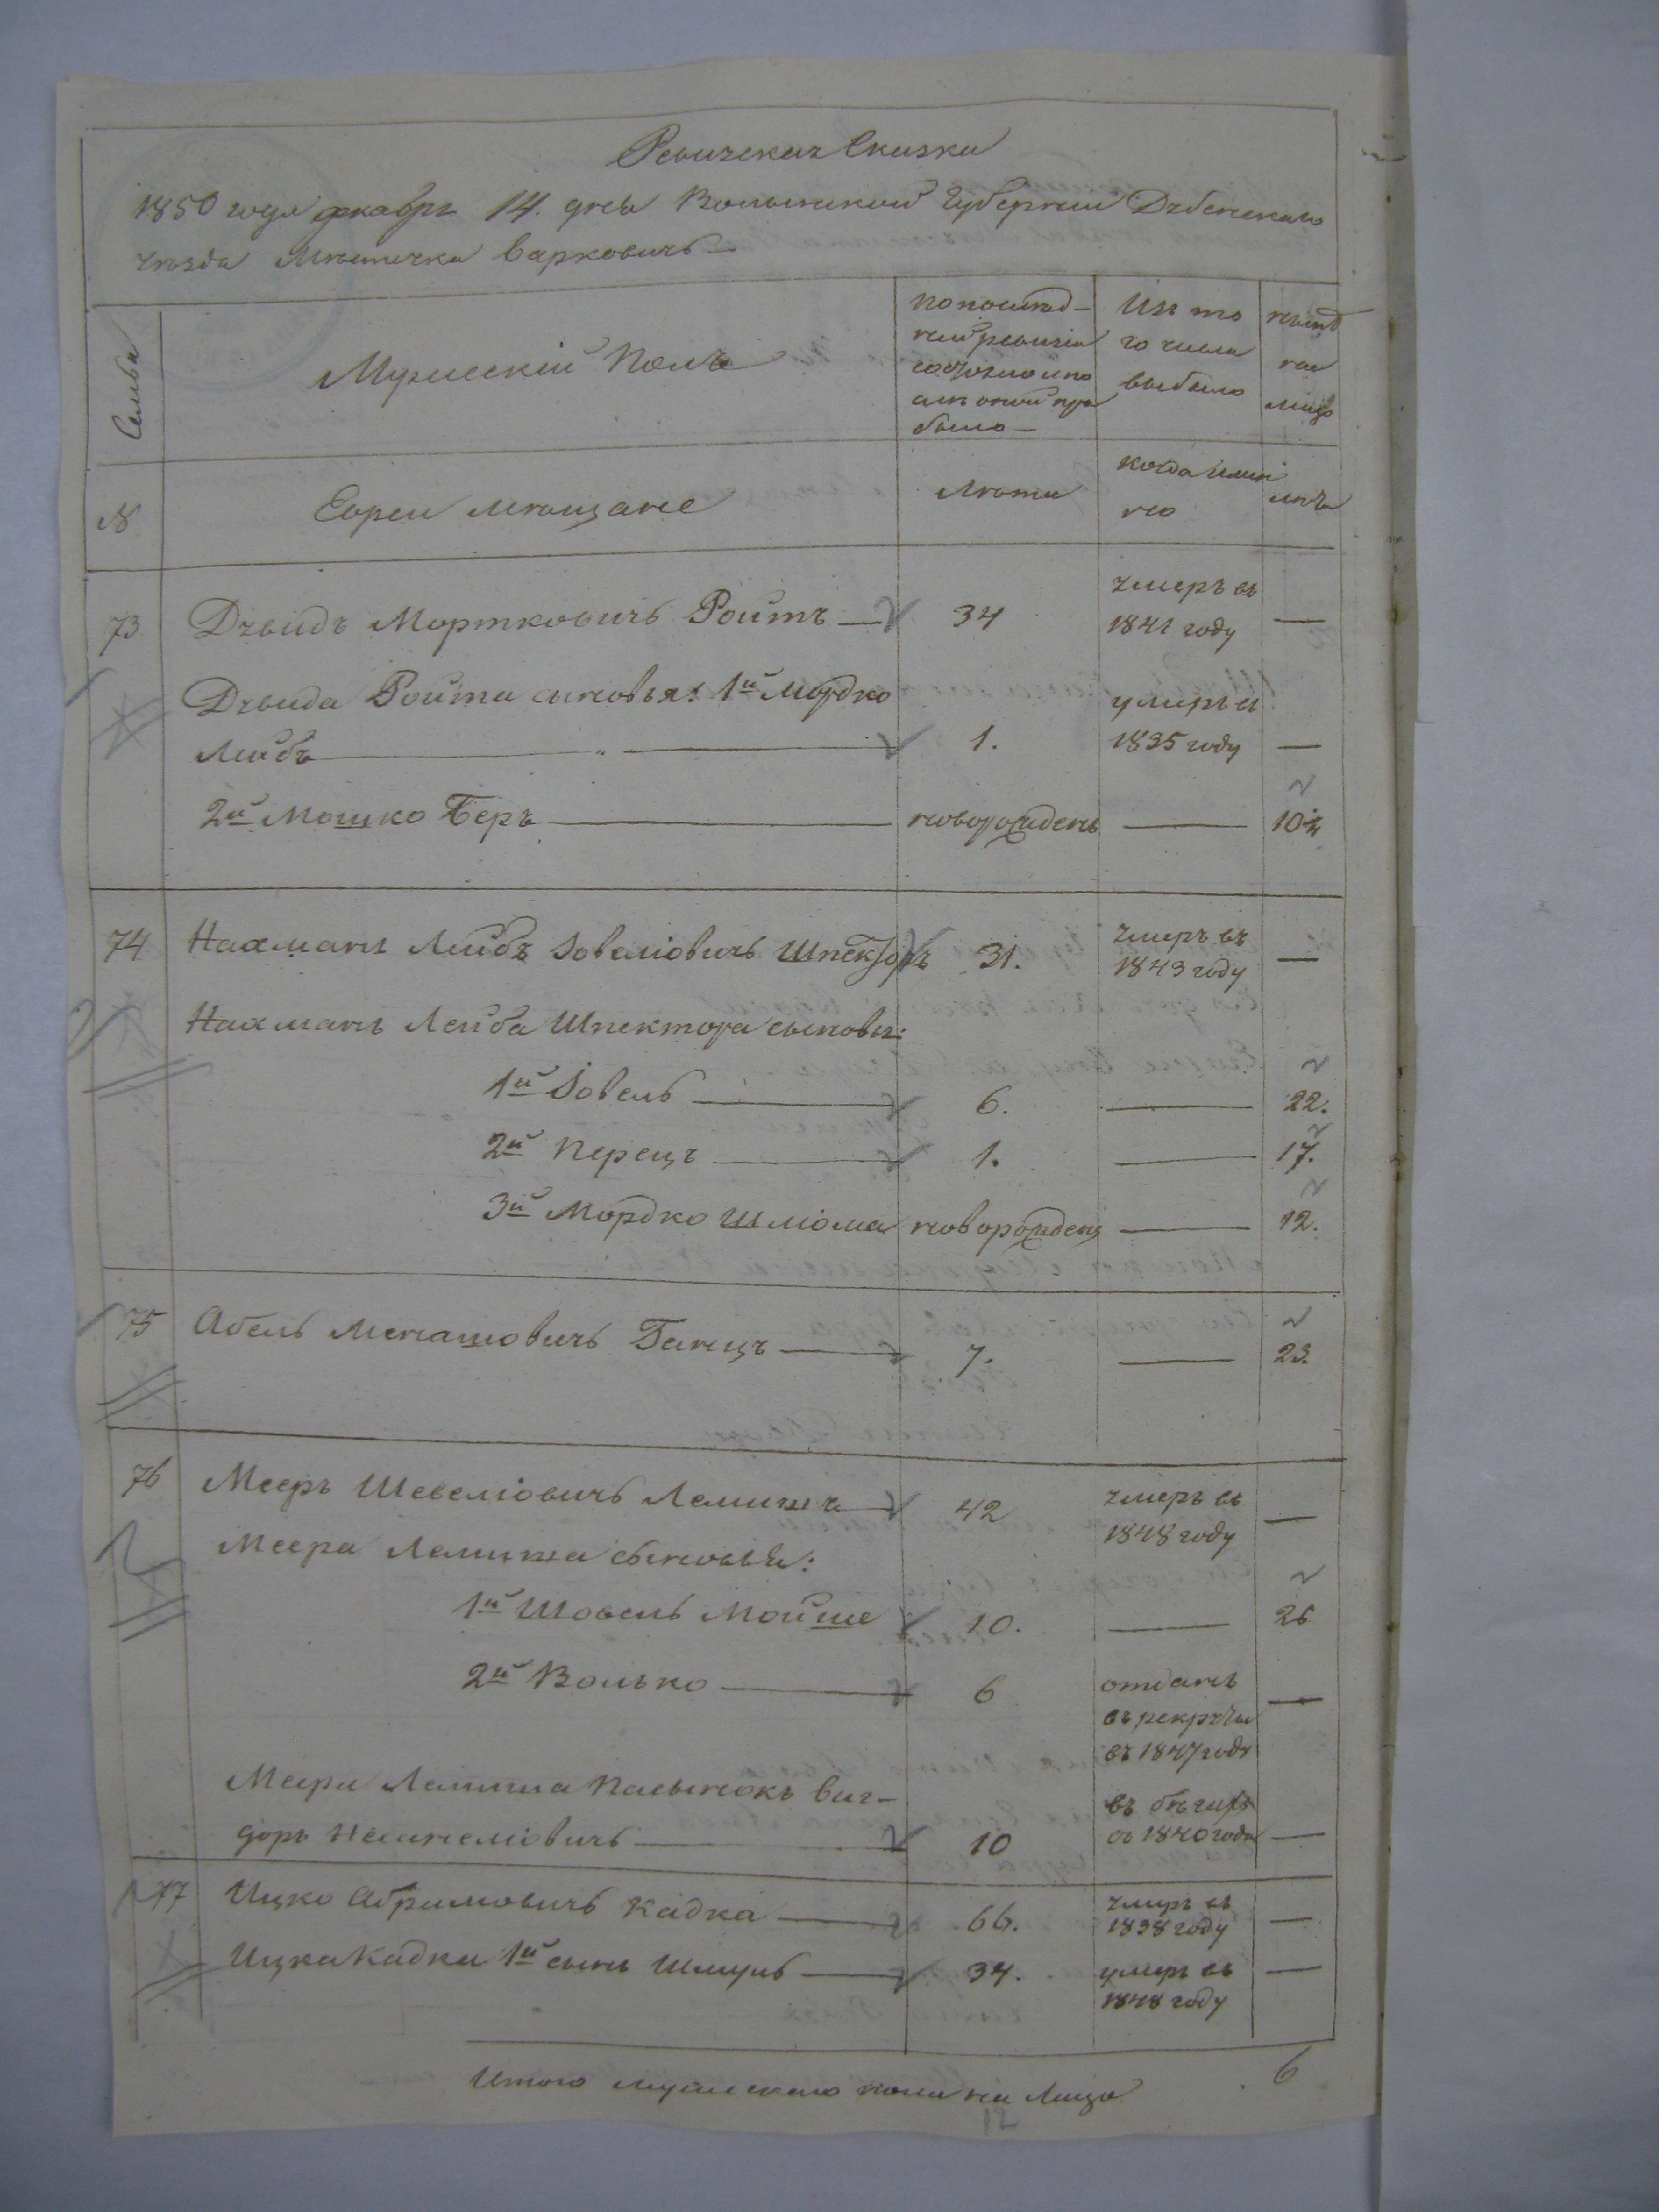 Ревижская Сказка
1850 года декабря 14. дня Волынской Губернии Дубенскаго
уезда Мѣстечка Варковичь
Семьи
Мужескій Полъ
по послѣд-
ней ревизіи
состояло и по
слѣ оной при
было
Изъ то
го числа
выбыло
нынѣ
на
лицо
№
Евреи мѣщане
Лѣта
когда имян
но
лѣта
73
Дувидъ Мортковичь Ройтъ
34
умеръ въ
1841 году
Дувида Ройта сыновья: 1й Мордко
Лейбъ
1.
умеръ въ
1835 году
2й Мошко Беръ
новорожденъ
10½
74
Нахманъ Лейбъ Іовеліовичь Шпекторъ
31.
умеръ въ
1843 году
Нахманъ Лейба Шпектора сыновья:
1й Іовель
6.
22.
2й Перецъ
1.
17.
3й Мордко Шліома
новорожденъ
12.
75
Абель Менашовичь Ганцъ
7.
23.
76
Мееръ Шевеліовичь Лемишъ
42
умеръ въ
1848 году
Меера Лемиша сыновья:
1й Шовель Мойше
10.
26
2й Волько
6
отданъ
въ рекруты
въ 1847 году
Меера Лемиша Пасынокъ Виг-
доръ
10
въ бѣгахъ
съ 1840 года
77
Ицко Абрамовичь Кадка
66.
умеръ въ
1838 году
Ицка Кадки 1й сынъ Шмуль
34.
умеръ въ
1848 году
Итого мужескаго пола на Лицо
6
12